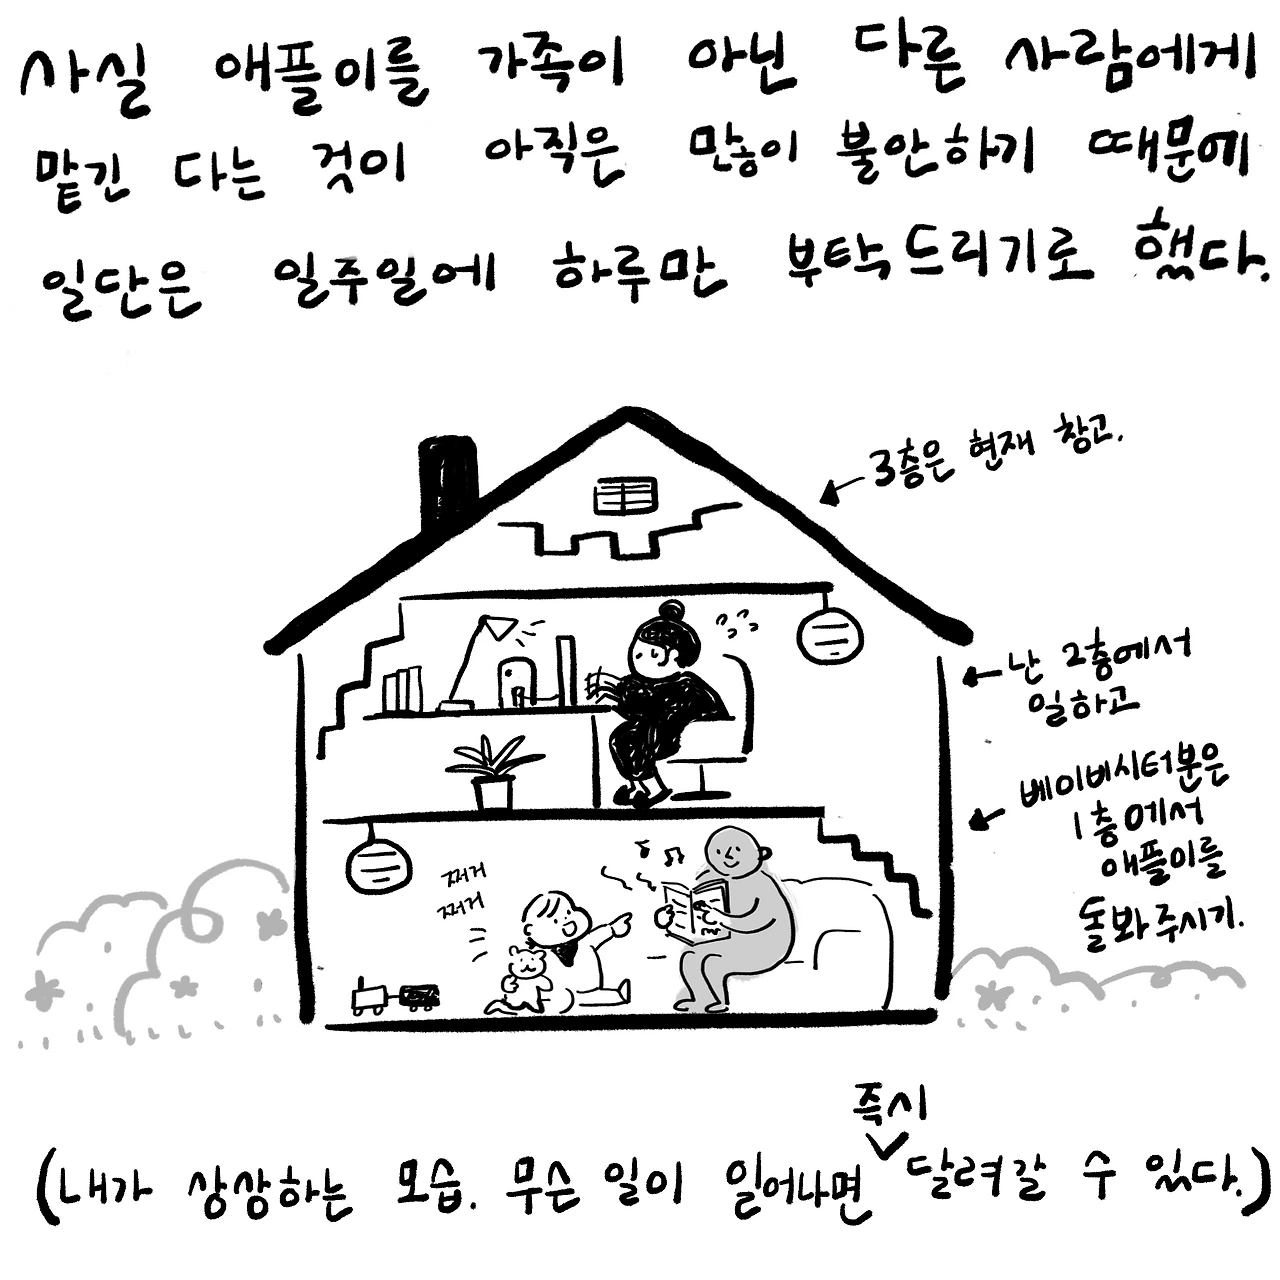 사실 애플이를 가족이 아닌 다른 사람에게
맡긴 다는 것이 아직은 많이 불안하기 때문에
일단은 일주일에 하루만 부탁드리기로 했다.
3층은 현재 창고.
난 2층에서
일하고
베이비시터분은
1층에서
애플이를
돌봐주시기.
쩌거
쩌거
즉시
(내가 상상하는 모습. 무슨 일이 일어나면 달려갈 수 있다.)